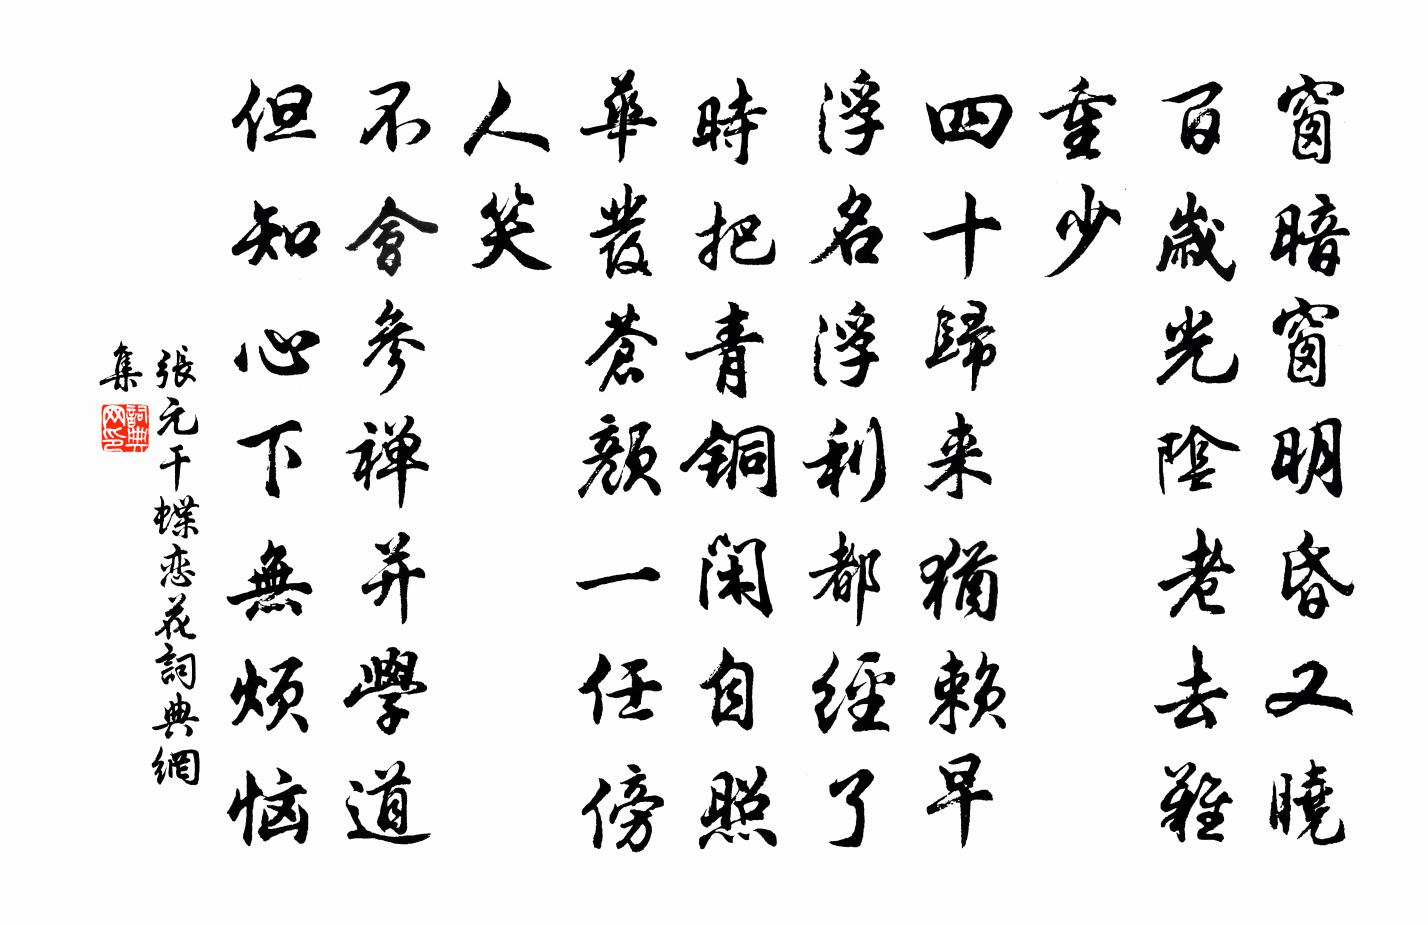 窗暗窗明昏又曉
百歲光陰老去難
重少
四十歸来猶賴早
浮名浮利都經了
時把青銅閑自照
華發蒼顏一任傍
人笑
不會參禅并學道
但知心下無烦惱
張元干蝶恋花詞典網
集
詞典
网印